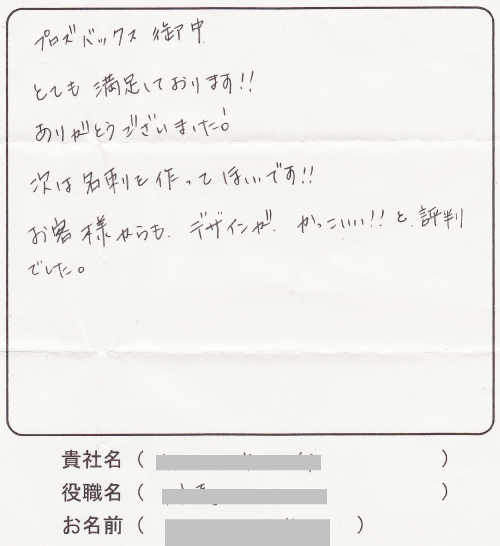 プロズバックス 御中
とても 満足しております!!
ありがとうございました!
次は名刺を作ってほしいです!!
お客様からも、デザインが、かっこいい!!と、評判
でした。
貴社名（　　　）
役職名（　　　）
お名前（　　　）